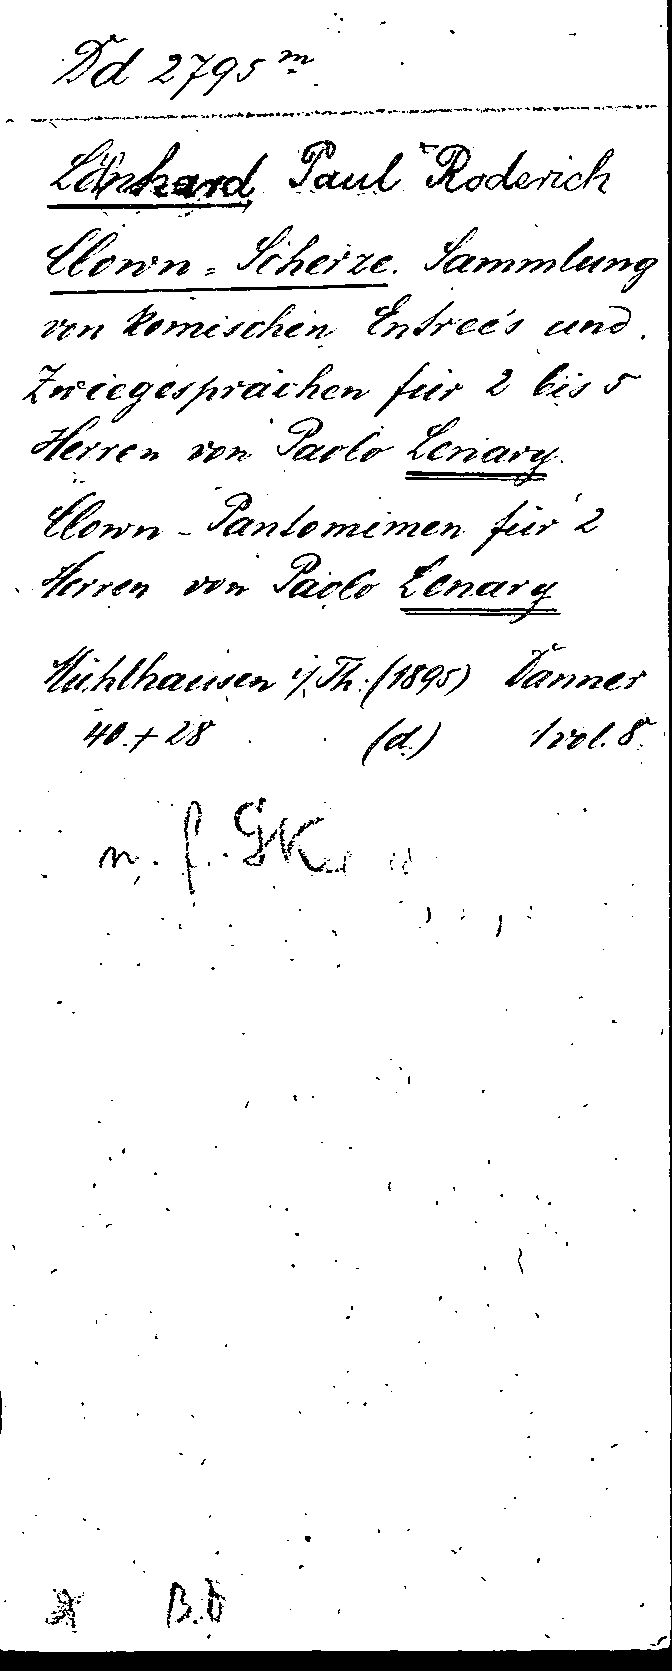 Dd 2795 m
Lönhard Paul Roderich
Clown=Scherze. Sammlung
von komischen Entreé's und
Zwiegesprächen für 2 bis 5
Herren von Paolo Lenary.
Clown-Pantomimen für 2
Herren von Paolo Lenary
Mühlhausen i/Th. (1895) Danner
40.+28 (d.) 1 vol. 8.
n. f. GK